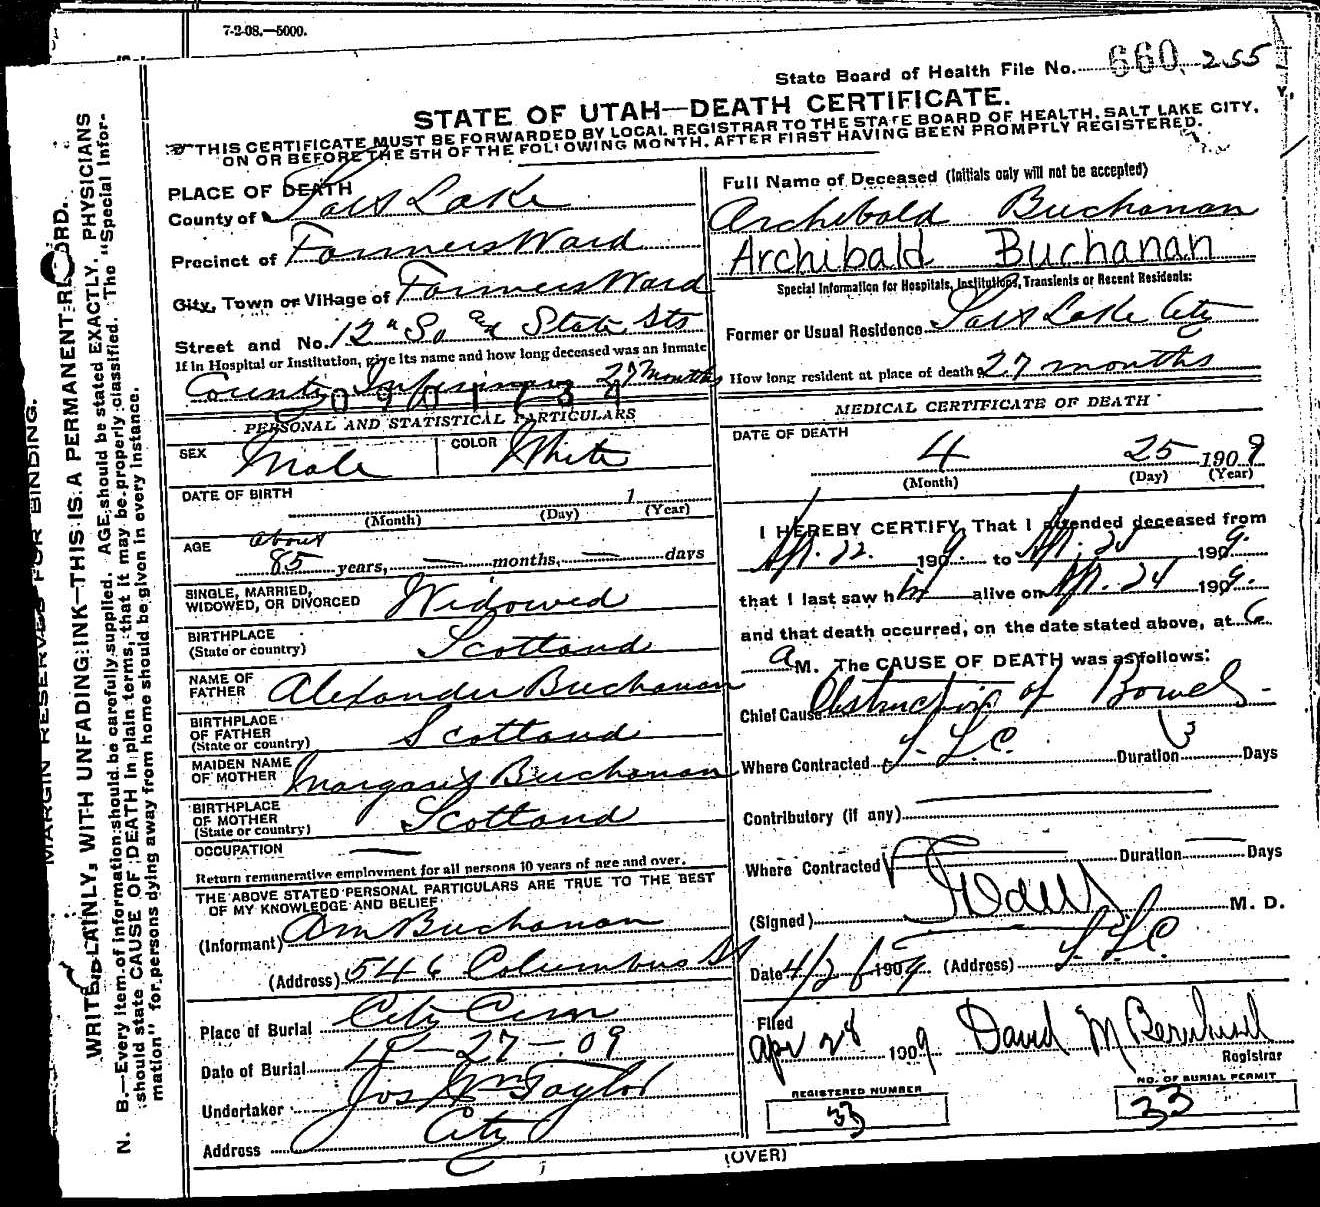 7-2-08.—5000.
State Board of Health File No. 660. 255
STATE OF UTAH—DEATH CERTIFICATE.
THIS CERTIFICATE MUST BE FORWARDED BY LOCAL REGISTRAR TO THE STATE BOARD OF HEALTH, SALT LAKE CITY,
ON OR BEFORE THE 5TH OF THE FOLLOWING MONTH, AFTER FIRST HAVING BEEN PROMPTLY REGISTERED.
PLACE OF DEATH
County of Salt Lake
Precinct of Farmers Ward
City, Town or Village of Farmers Ward
Street and No. 12" So and State Sts
If in Hospital or Institution, give its name and how long deceased was an inmate
County Infirmary 27 months
0901734
PERSONAL AND STATISTICAL PARTICULARS
SEX Male COLOR White
DATE OF BIRTH 1
(Month) (Day) (Year)
AGE about
85 years, — months, — days
SINGLE, MARRIED,
WIDOWED, OR DIVORCED Widowed
BIRTHPLACE
(State or country) Scotland
NAME OF
FATHER Alexander Buchanan
BIRTHPLACE
OF FATHER
(State or country) Scotland
MAIDEN NAME
OF MOTHER Margaret Buchanan
BIRTHPLACE
OF MOTHER
(State or country) Scotland
OCCUPATION —
Return remunerative employment for all persons 10 years of age and over.
THE ABOVE STATED PERSONAL PARTICULARS ARE TRUE TO THE BEST
OF MY KNOWLEDGE AND BELIEF
(Informant) Buchanan
(Address) 546 Columbus St
Place of Burial City Cem
Date of Burial 4-27-09
Undertaker Jos Wm Taylor
Address City
Full Name of Deceased (Initials only will not be accepted)
Archibald Buchanan
Archibald Buchanan
Special Information for Hospitals, Institutions, Transients or Recent Residents:
Former or Usual Residence Salt Lake City
How long resident at place of death 27 months
MEDICAL CERTIFICATE OF DEATH
DATE OF DEATH
4 25 1909
(Month) (Day) (Year)
I HEREBY CERTIFY, That I attended deceased from
Apr. 22. 1909. to Apr. 25 1909.
that I last saw him alive on Apr. 24 1909.
and that death occurred, on the date stated above, at 6
a M. The CAUSE OF DEATH was as follows:
Chief Cause Obstruction of Bowels-
Where Contracted S. L. C. Duration 3 Days
Contributory (if any) —
Where Contracted — Duration — Days
(Signed) M. D.
Date 4/26 1909 (Address) S. L. C
Filed
Apr 28 1909 David M
Registrar
REGISTERED NUMBER
33
NO. OF BURIAL PERMIT
33
(OVER)
MARGIN RESERVED FOR BINDING.
WRITE PLAINLY, WITH UNFADING INK—THIS IS A PERMANENT RECORD.
N. B.—Every item of information should be carefully supplied. AGE should be stated EXACTLY. PHYSICIANS
should state CAUSE OF DEATH in plain terms, that it may be properly classified. The "Special Infor-
mation" for persons dying away from home should be given in every instance.